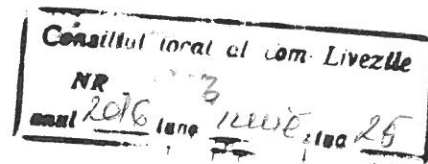 Consiliul local al com. Livezile
NR 3
anul 2016 luna iunie ziua 25